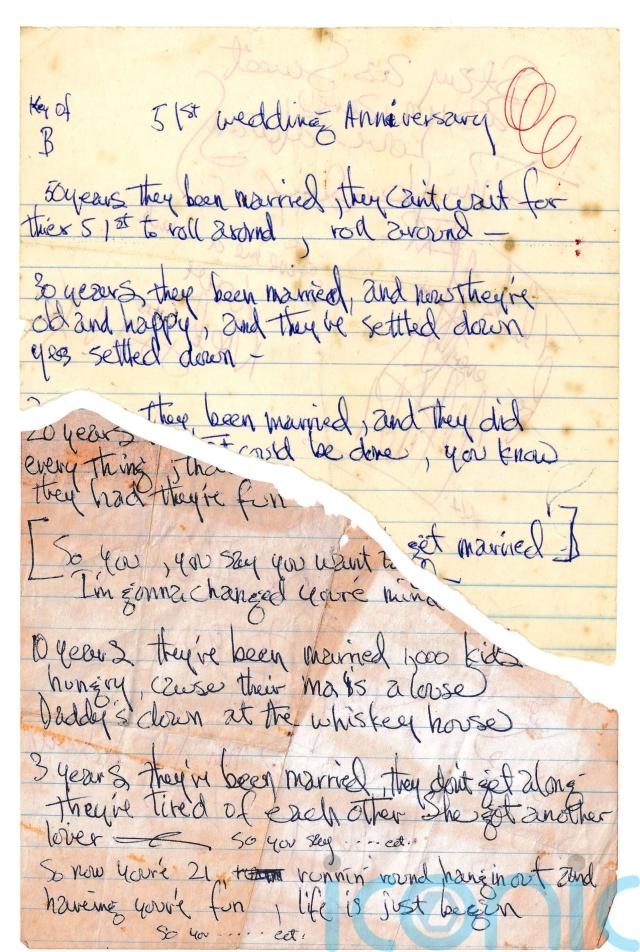 Key of
B
51st wedding Anniversary
50 years they been married, they can't wait for
thier 51st to roll around, roll around —
30 years, they been married, and now they're
old and happy, and they've settled down
yes settled down -
20 years they been married, and they did
every thing, tha could be done, you know
they had they're fun
[So you, you say you want to get married]
I'm gonna changed you're mind
10 years they've been married 1,000 kids
hungry, cause their ma is a louse
Daddy's down at the whiskey house
3 years, they've been married, they don't get along
they're tired of each other She got another
lover — so you say ..... ect.
So now you're 21, runnin round, hangin out and
haveing you're fun, life is just begin
So you ...... ect.
iconic